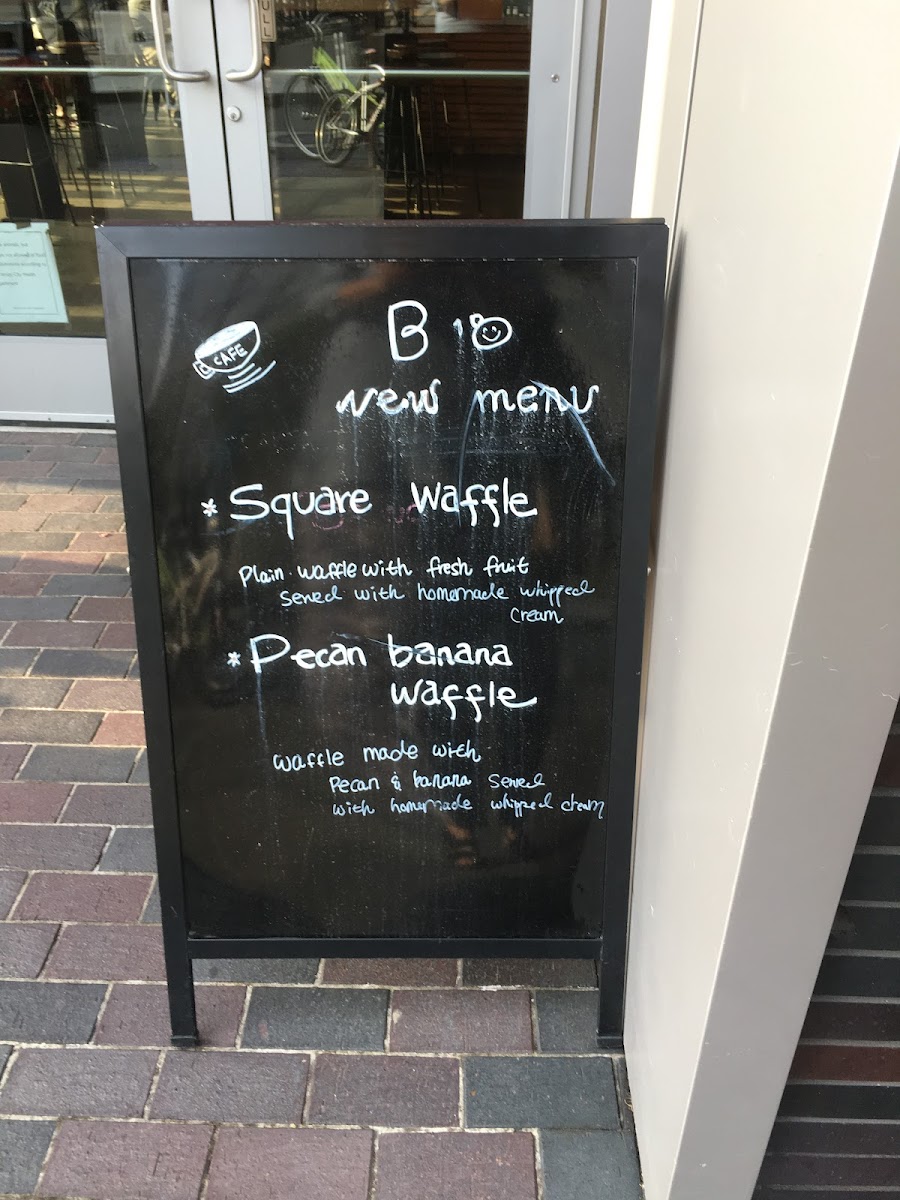 PULL
CAFE
Bio
new menu
* Square Waffle
Plain waffle with fresh fruit
served with homemade whipped
cream
* Pecan banana
waffle
waffle made with
Pecan & banana served
with homemade whipped cream